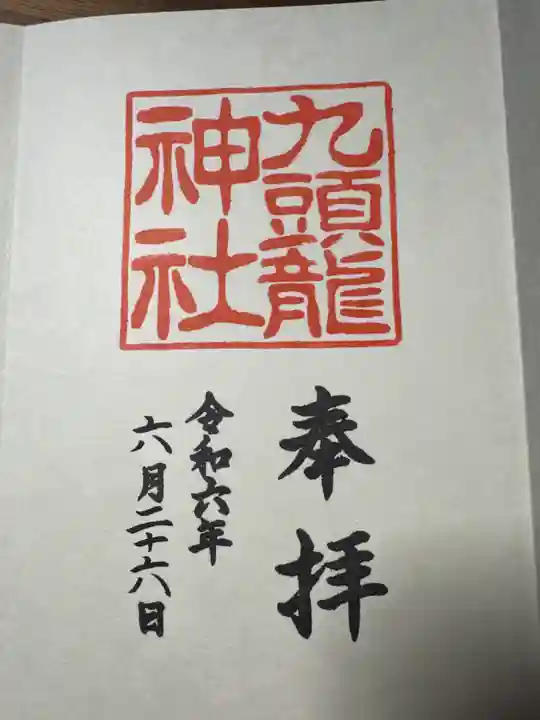 九頭龍
神社
奉拝
令和六年
六月二十六日